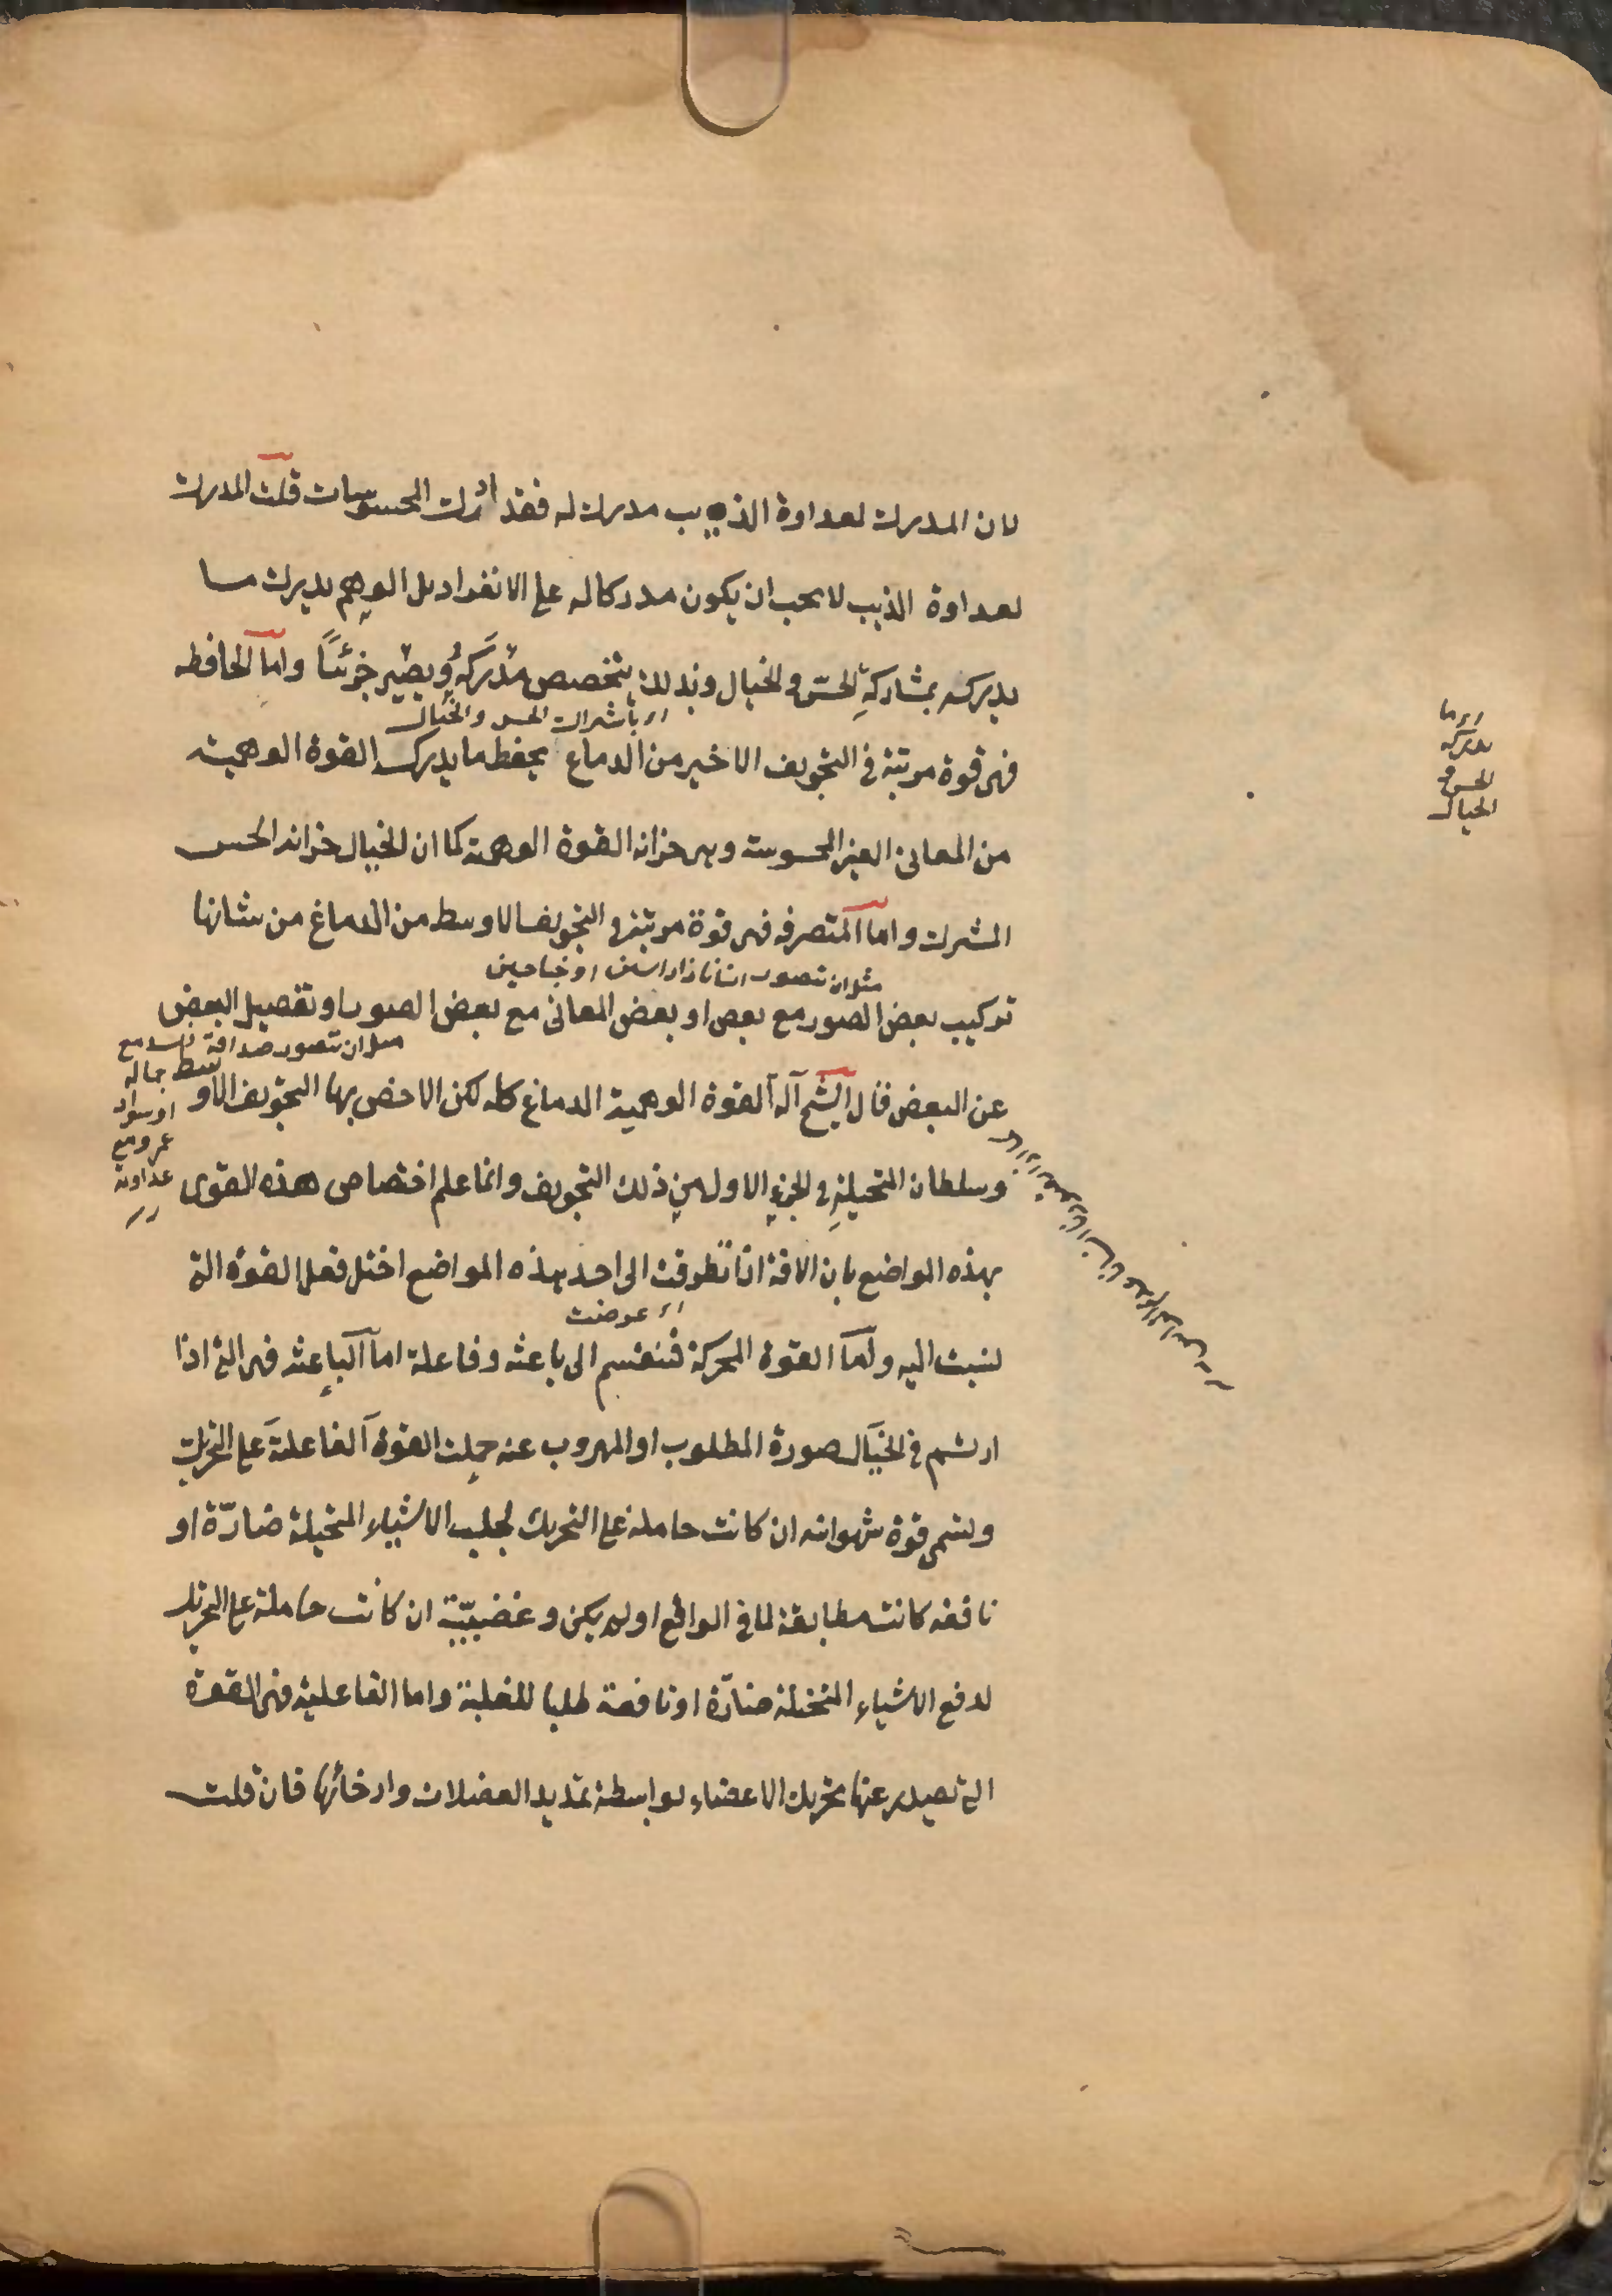 لان المدرك لعداوة الذيب مدرك له فقد ادرك المحسوسات قلت المدرك
لعداوة الذيب لا يجب ان يكون مدركا له على الانفراد بل الوهم يدرك ما
يدركه بمشاركة الحس والخيال وبذلك يتخصص مدركه ويصير جزئيا واما الحافظه
اى باشراك الحس والخيال
فهى قوة مرتبة فى التجويف الاخير من الدماغ يحفظ ما يدركه القوة الوهمية
من المعانى الغير المحسوسة وهى خزانة القوة الوهمية كما ان الخيال خزانة الحس
المشترك واما المتصرفه فهى قوة مرتبة فى التجويف الاوسط من الدماغ من شانها
مثل ان تتصور انسانا ذا راسين او جناحين
تركيب بعض الصور مع بعض او بعض المعانى مع بعض الصور او تفصيل البعض
مثل ان تتصور صداقة مع
جماله
او سواد
عمرو مع
عداوته
عن البعض قال الشيخ آلة القوة الوهمية الدماغ كله لكن الاخص بها التجويف الاوسط
وسلطان المتخيلة فى الجزء الاول من ذلك التجويف وانما علم اختصاص هذه القوى
بهذه المواضع بان الافة اذا تطرقت الى احد هذه المواضع اختل فعل القوة التى
اى عرضت
نسبت اليه واما القوة المحركة فتنقسم الى باعثة وفاعلة اما الباعثة فهى التى اذا
ارتسم فى الخيال صورة المطلوب او المهروب عنه حملت القوة الفاعلة على التحريك
وتسمى قوة شهوانية ان كانت حاملة على التحريك لجلب الاشياء المتخيلة ضارّة او
نافعة كانت مطابقة لما فى الواقع او لم يكن وغضبيّة ان كانت حاملة على التحريك
لدفع الاشياء المتخيلة ضارّة او نافعة طلبا للغلبة واما الفاعلية فهى القوة
التى تصدر عنها تحريك الاعضاء بواسطة تمديد العضلات وارخائها فان قلت
اى ما
يدركه
الحس و
الخيال